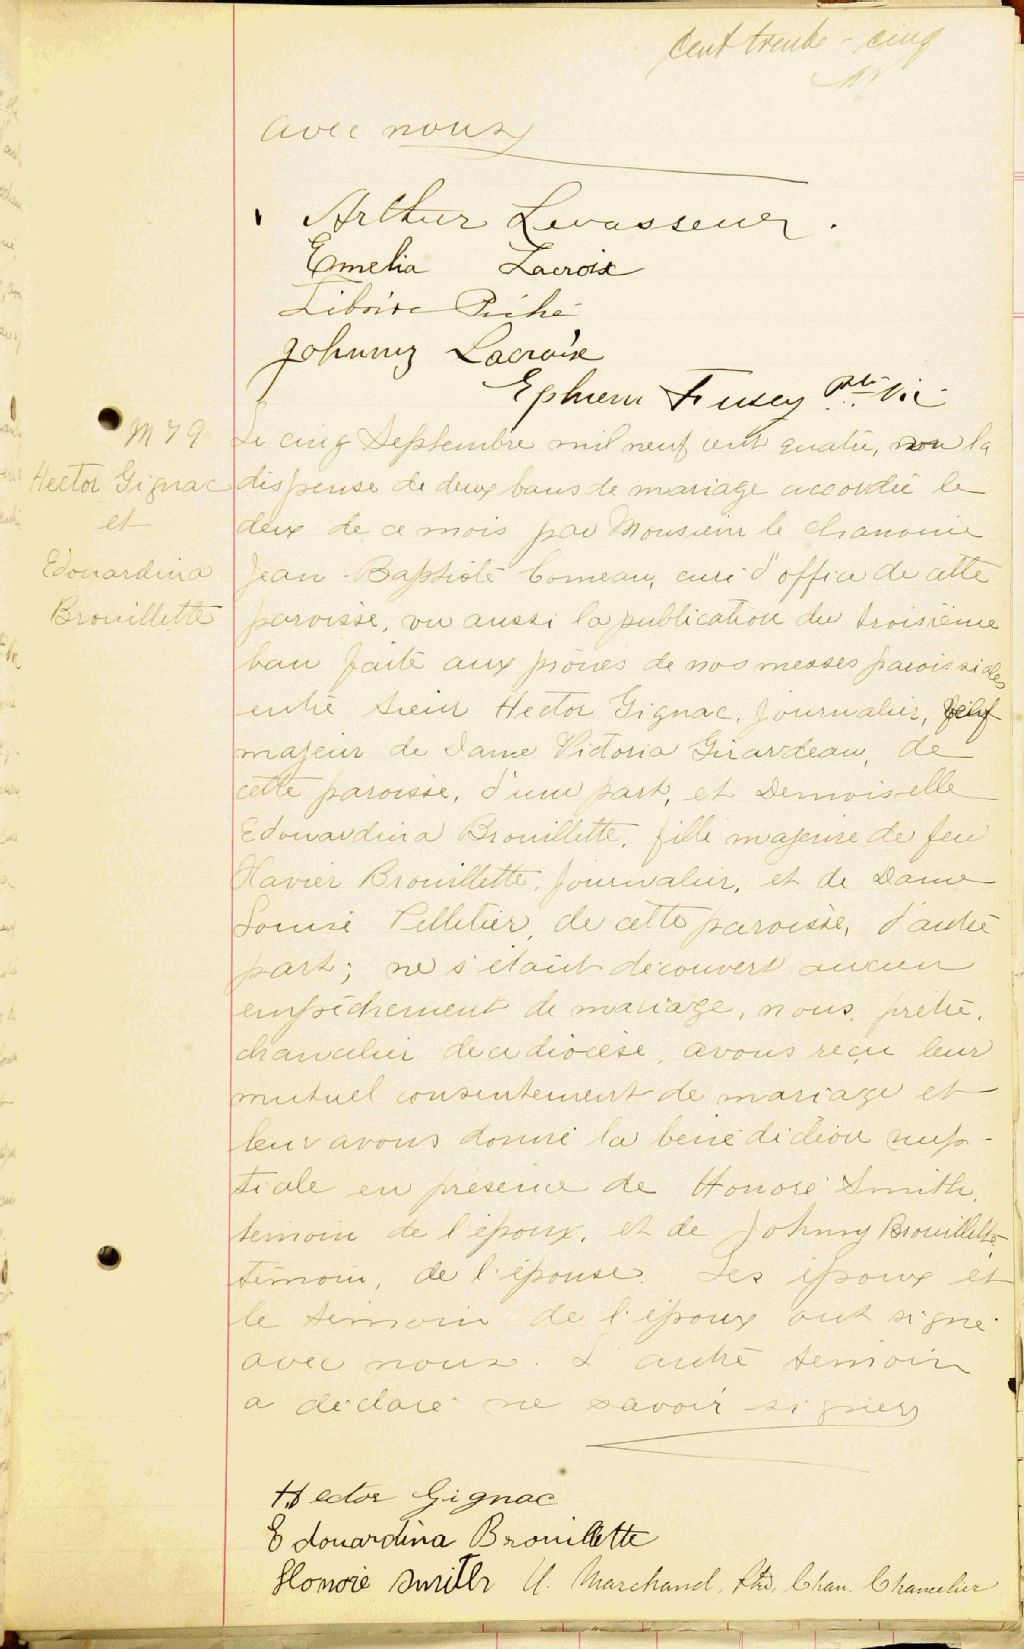 cent trente-cinq
avec nous
Arthur Levasseur.
Emelia Lacroix
Liboire Piché
Johnny Lacroix
Ephrem Fusey Ptre Vic
M 79
Hector Gignac
et
Edouardina
Brouillette
Le cinq Septembre mil neuf cent quatre, vu la
dispense de deux bans de mariage accordée le
deux de ce mois par Monsieur le chanoine
Jean-Baptiste Comeau, curé d'office de cette
paroisse, vu aussi la publication du troisième
ban faite aux prônes de nos messes paroissiales
entre Sieur Hector Gignac, journalier, veuf
majeur de Dame Victoria Girardeau, de
cette paroisse, d'une part, et Demoiselle
Edouardina Brouillette, fille majeure de feu
Xavier Brouillette, journalier, et de Dame
Louise Pelletier, de cette paroisse, d'autre
part; ne s'étant découvert aucun
empêchement de mariage, nous, prêtre,
chancelier de ce diocèse, avons reçu leur
mutuel consentement de mariage et
leur avons donné la bénédiction nup-
tiale en présence de Honoré Smith,
témoin de l'époux, et de Johnny Brouillette,
témoin, de l'épouse. Les époux et
le témoin de l'époux ont signé
avec nous. L'autre témoin
a déclaré ne savoir signer
Hector Gignac
Edouardina Brouillette
Honoré Smith U. Marchand, Ptre, Chan. Chancelier